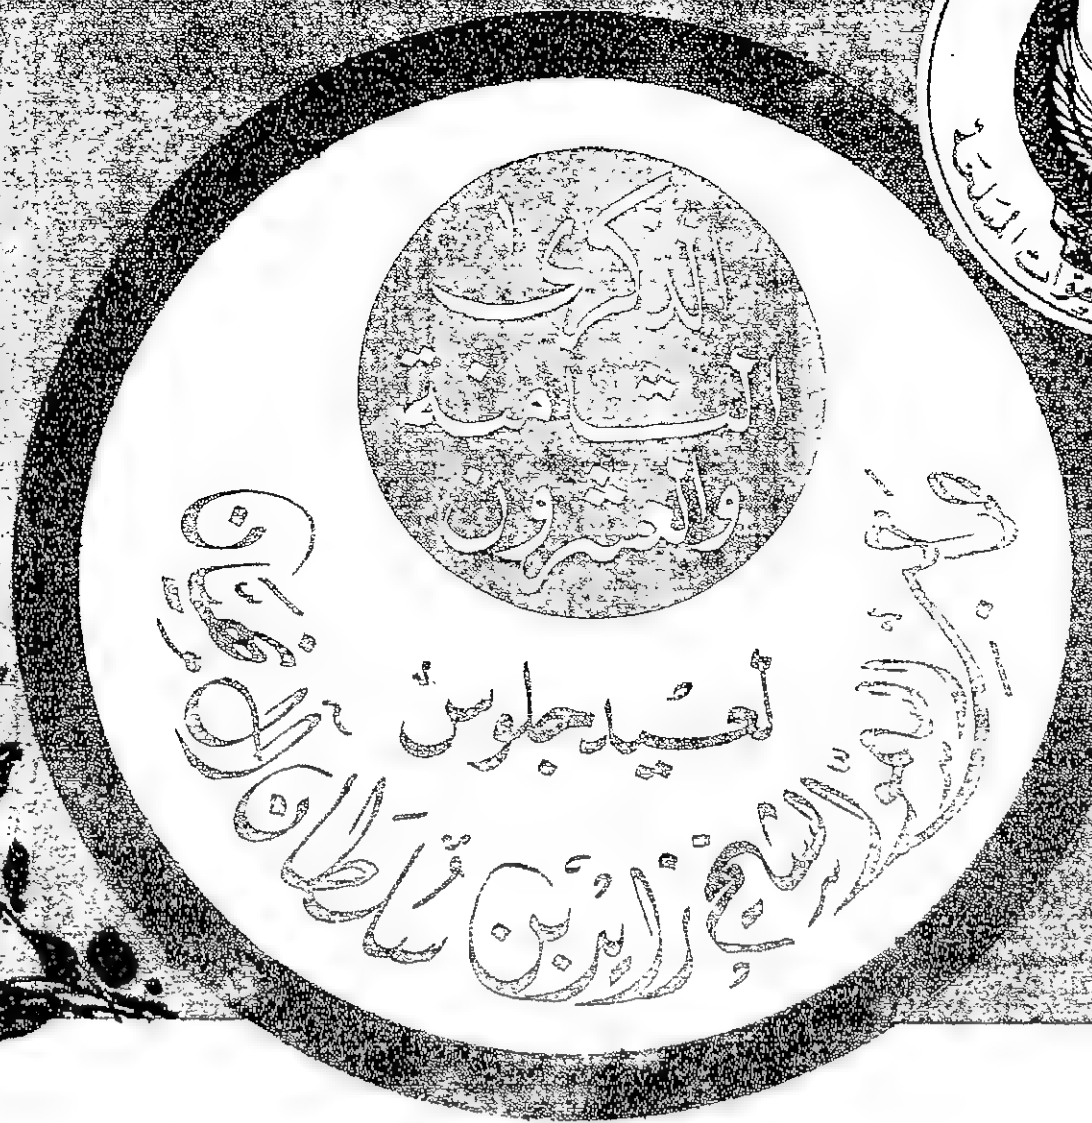 الذكرى
الثامنة
والعشرون
لعيد جلوس
صاحب السمو الشيخ زايد بن سلطان آل نهيان